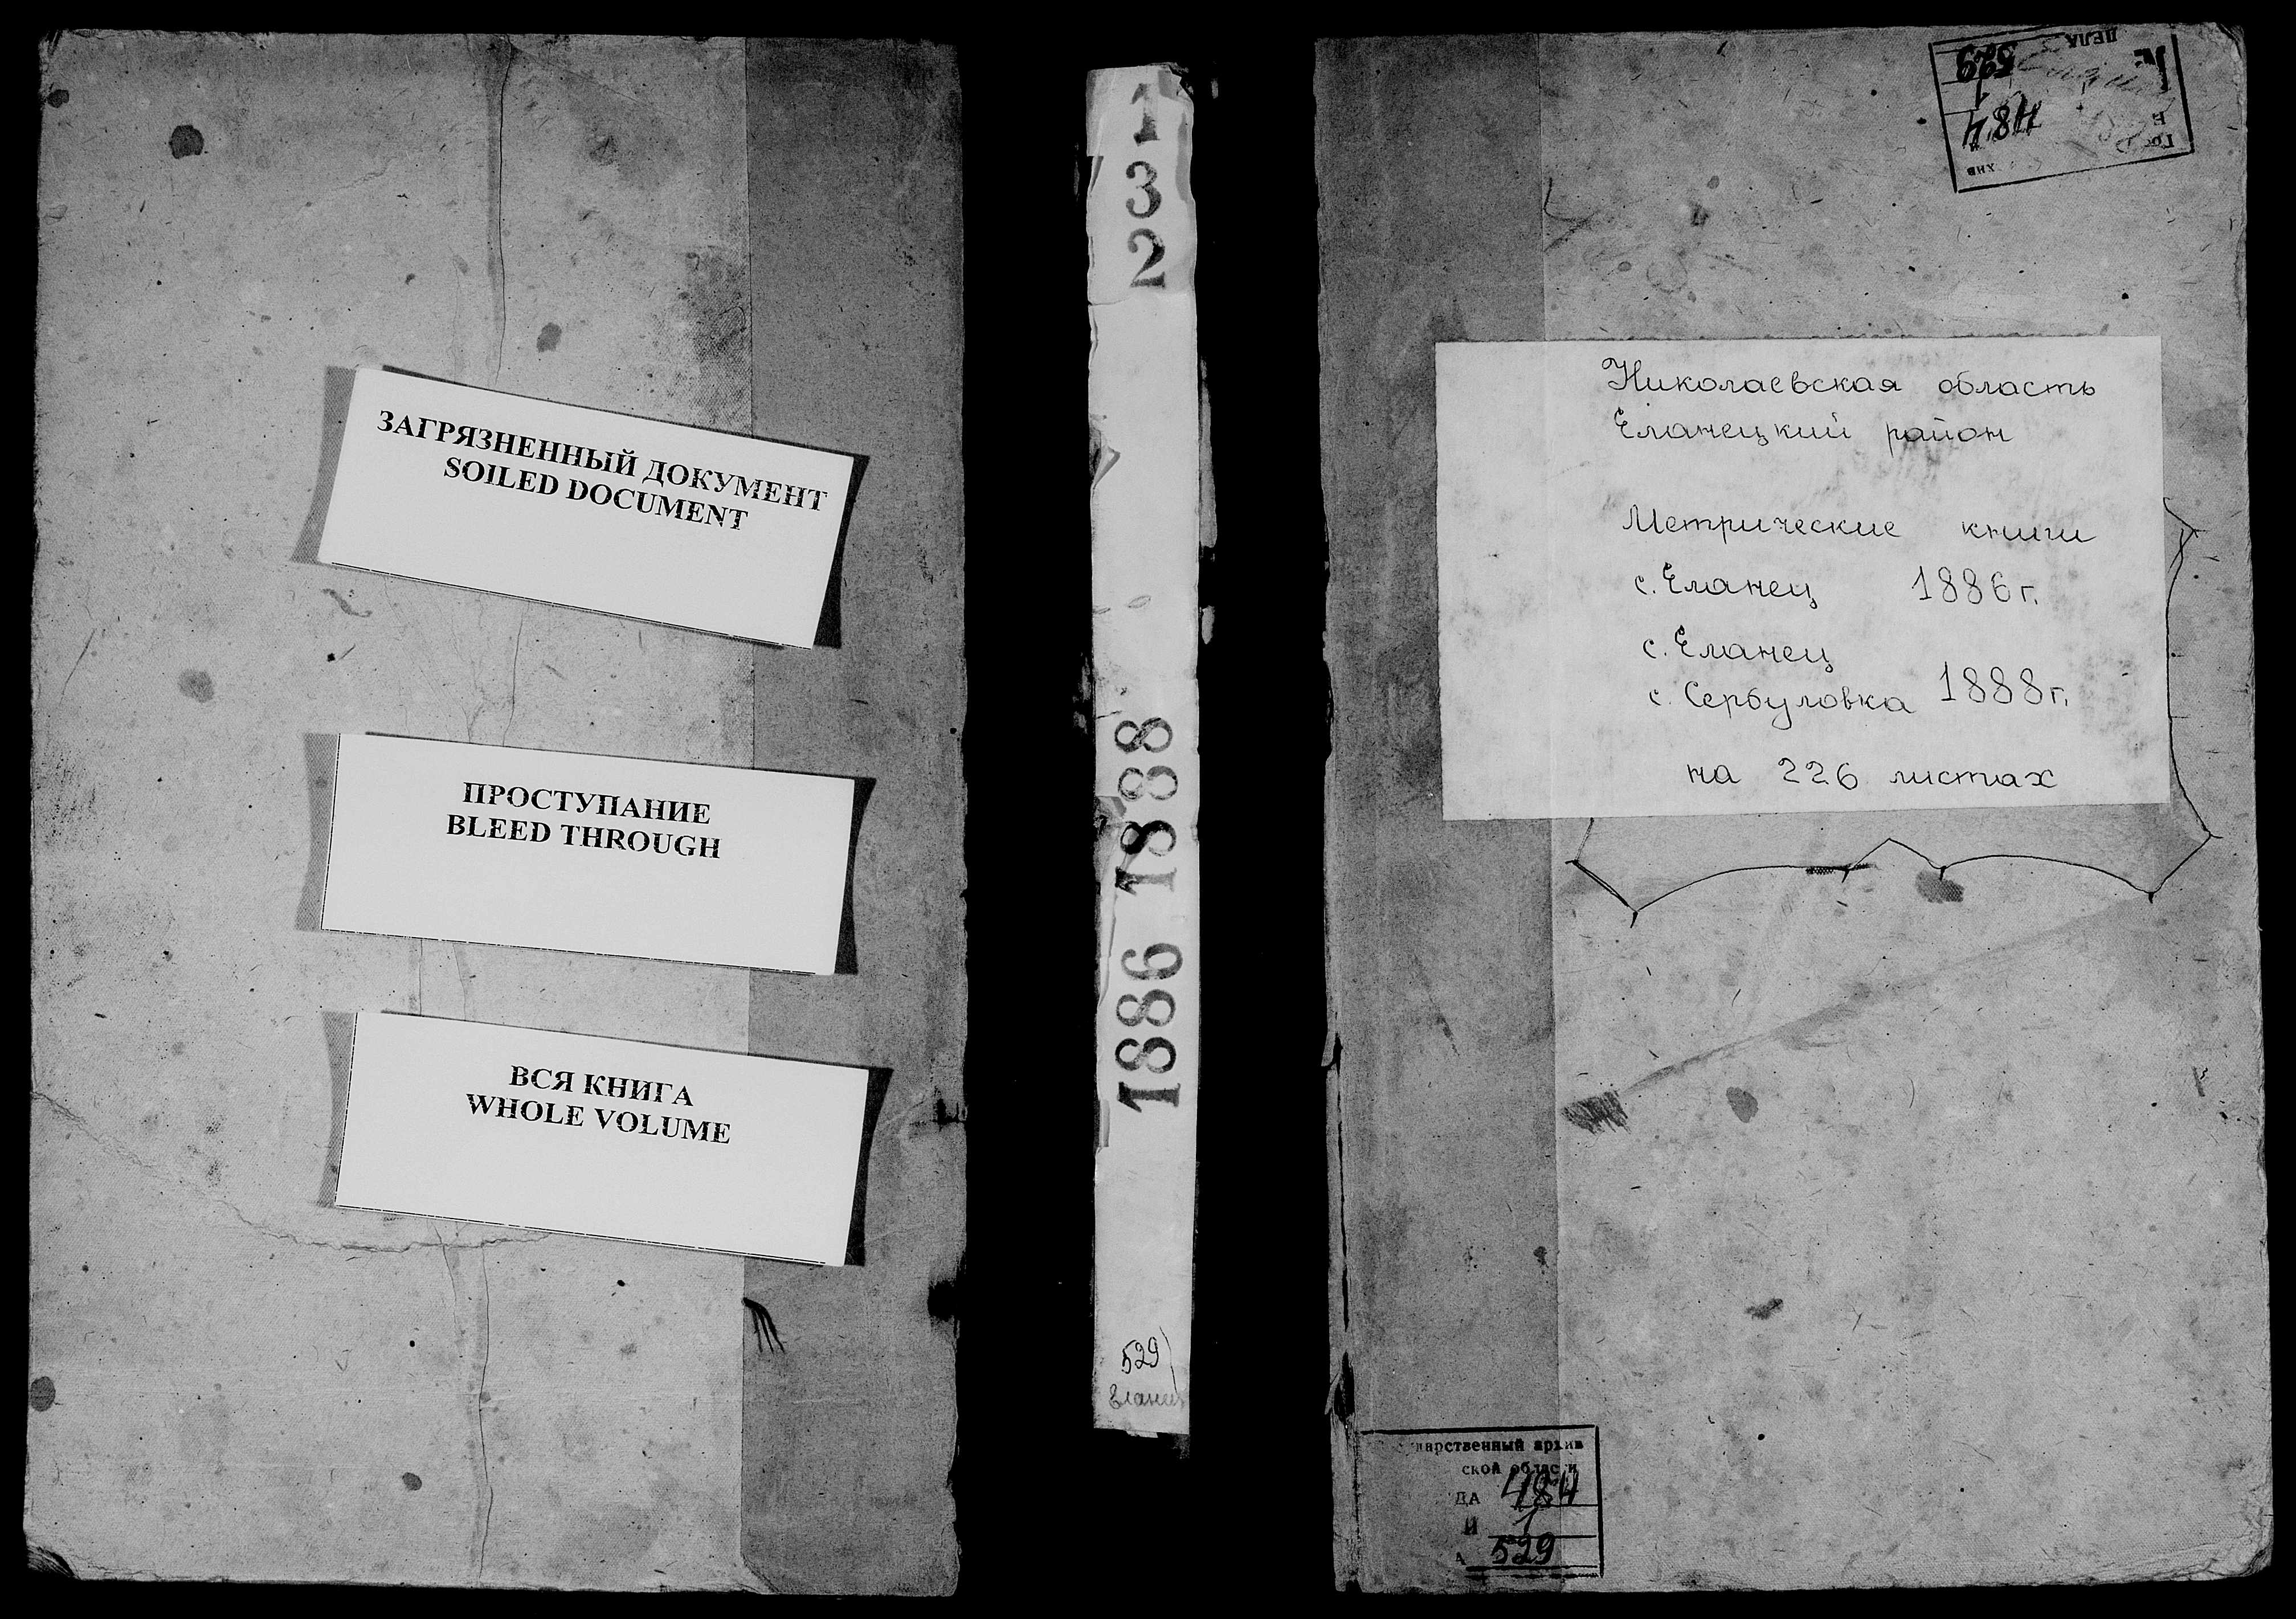 ЗАГРЯЗНЕННЫЙ ДОКУМЕНТ
SOILED DOCUMENT
ПРОСТУПАНИЕ
BLEED THROUGH
ВСЯ КНИГА
WHOLE VOLUME
1
3
2
1886 1888
529
Еланец
ДЕЛА
№
529
1
484
Николаевская область
Еланецкий район
Метрические книги
с. Еланец 1886 г.
с. Еланец
с. Сербуловка 1888 г.
на 226 листах
арственный архив
ской области
ДА 484
И 1
А 529